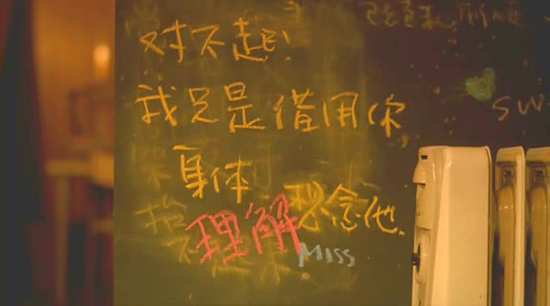 对不起!
我只是借用你
身体
理解想念他.
MISS
SW